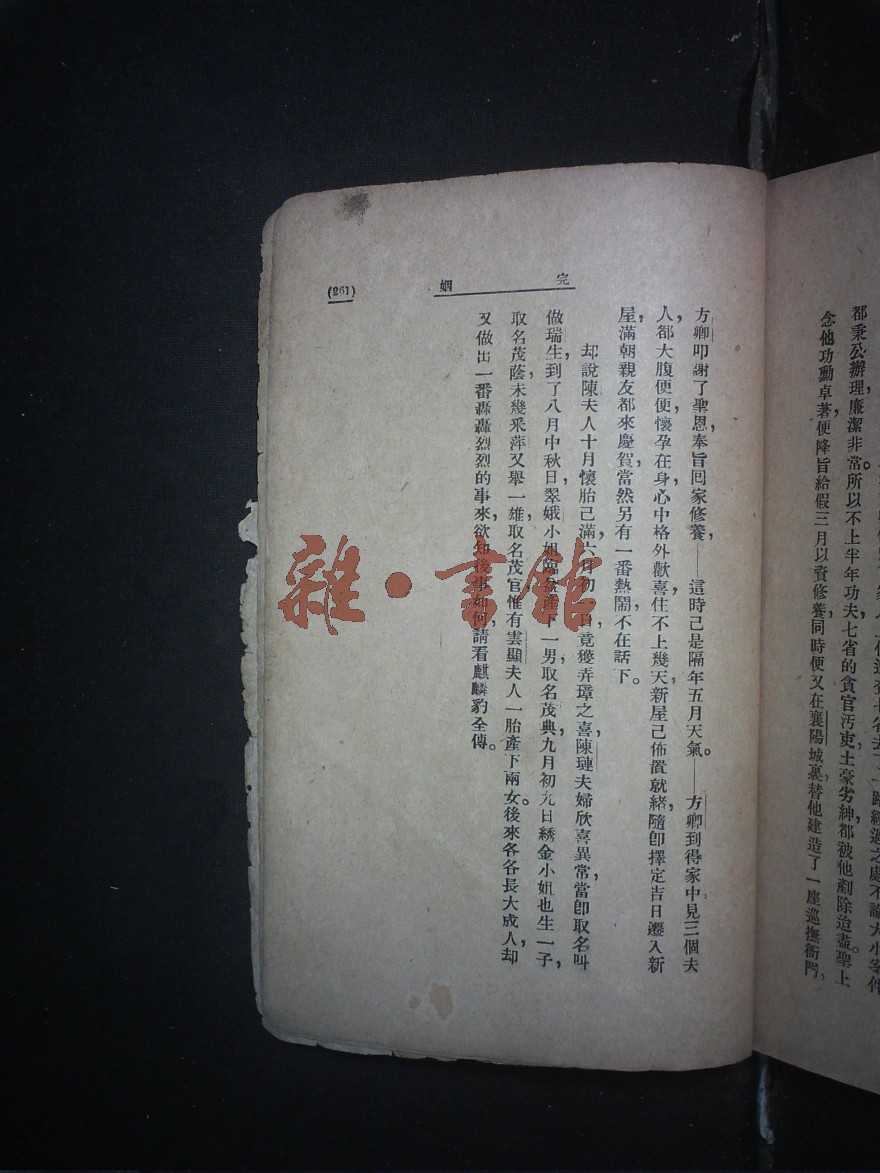 都秉公辦理廉潔非常。所以不上半年功夫七省的貪官汚吏土豪劣紳都被他剷除迨盡。聖上
念他功勳卓著，便降旨給假三月以資修養，同時便又在襄陽城裏替他建造了一座巡撫衙門，
完姻
(261)
方卿叩謝了聖恩，奉旨囘家修養，——這時已是隔年五月天氣。——方卿到得家中，見三個夫
人，都大腹便便，懷孕在身，心中格外歡喜，住不上幾天，新屋已佈置就緒，隨卽擇定吉日遷入新
屋，滿朝親友都來慶賀，當然另有一番熱鬧，不在話下。
却說陳夫人十月懷胎已滿，六月初一日竟獲弄璋之喜，陳璉夫婦欣喜異常，當卽取名叫
做瑞生，到了八月中秋日，翠娥小姐臨盆產下一男，取名茂典，九月初九日綉金小姐也生一子，
取名茂蔭，未幾釆萍又舉一雄，取名茂官，惟有雲顯夫人一胎產下兩女。後來各各長大成人，却
又做出一番轟轟烈烈的事來，欲知後事如何，請看麒麟豹全傳。
雜·書館